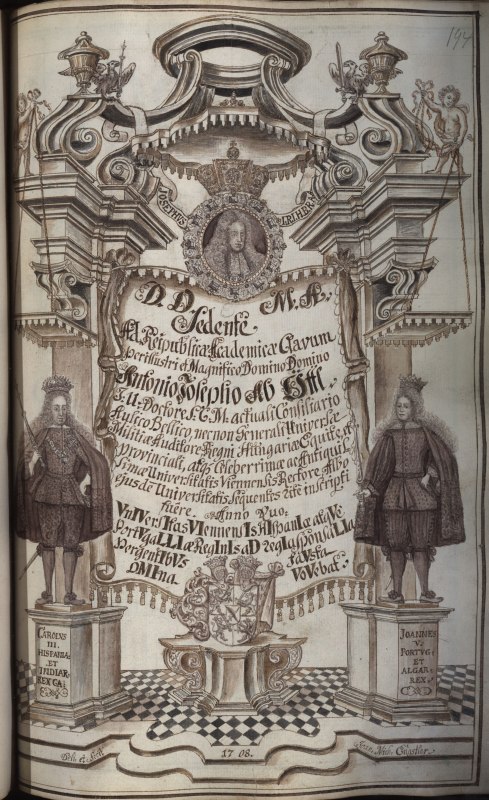 194
IOSEPHUS
D. D. M. A.
Sedente
Ad Reipublicæ Academicæ Clavum
perillustri et Magnifico Domino Domino
Antonio Josepho Ab Öttl
I. U. Doctore S. C. M. actuali Consiliario
Aulico Bellico, necnon Generali Universæ
Militiæ Auditore Regni Hungariæ Equite, et
provinciali, atq3 Celeberrimæ ac Antiquis
simæ Universitatis Viennensis Rectore Albo
ejusdē Universitatis sequentes ritè inscripti
fuêre. Anno Quo.
VnIVersItas VIennensIs HIspanIæ atqVe
PortVgaLLIæ RegInIs aD regIa sponsaLIa
pergentIbVs faVsta
OMIna VoVebat.
CAROLVS
III.
HISPANIA:
ET
INDIAR:
REX CA:
JOANNES
V.
PORTVG:
ET
ALGAR:
REX.
1708.
Joan: Mich: